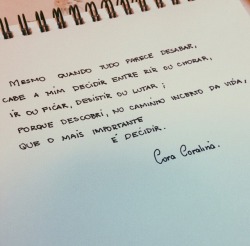 MESMO QUANDO TUDO PARECE DESABAR,
CABE A MIM DECIDIR ENTRE RIR OU CHORAR,
IR OU FICAR, DESISTIR OU LUTAR;
PORQUE DESCOBRI, NO CAMINHO INCERTO DA VIDA,
QUE O MAIS IMPORTANTE
É DECIDIR.
Cora Coralina.